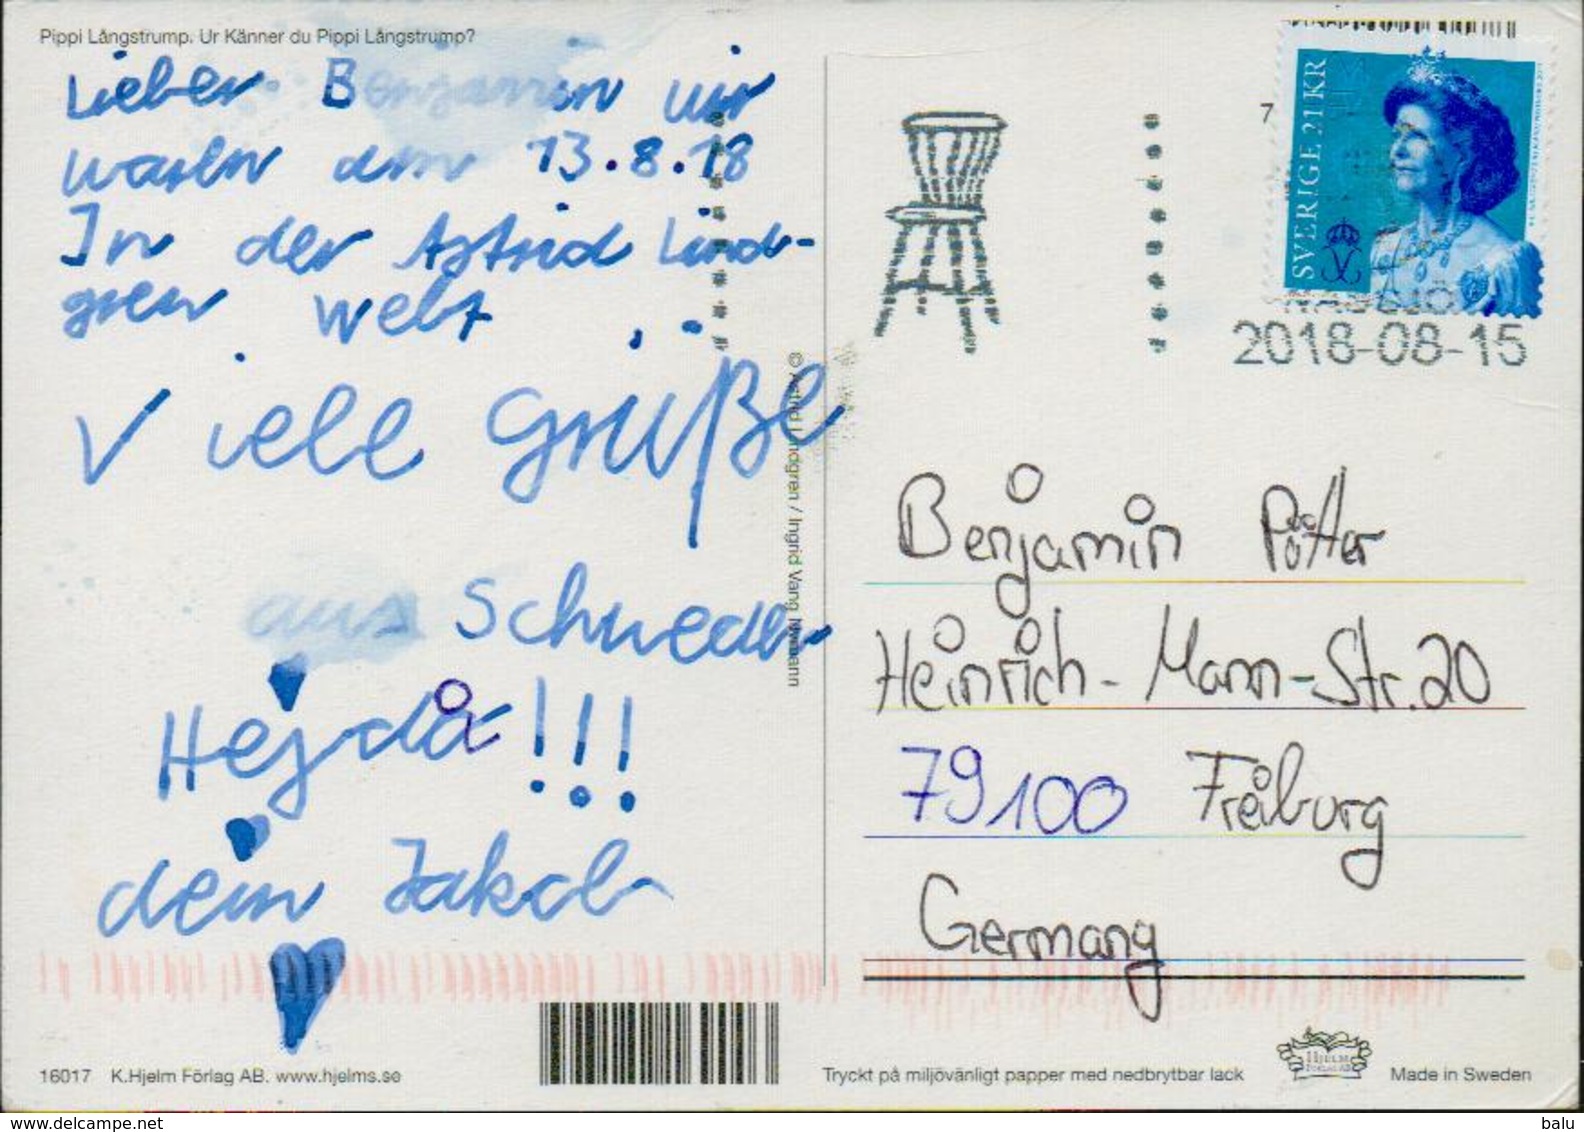 Pippi Långstrump. Ur Känner du Pippi Långstrump?
Lieber Benjamin wir
waren am 13.8.18
In der Astrid Lind-
gren Welt
Viele Grüße
aus Schweden
Hejdå!!!
dein Jakob
16017 K.Hjelm Förlag AB. www.hjelms.se
© Astrid Lindgren / Ingrid Vang Nyman
7
SVERIGE 21 KR
NÄSSJÖ
2018-08-15
Benjamin Pötter
Heinrich-Mann-Str.20
79100 Freiburg
Germany
HJELM
FÖRLAG AB
Tryckt på miljövänligt papper med nedbrytbar lack
Made in Sweden
www.delcampe.net
balu